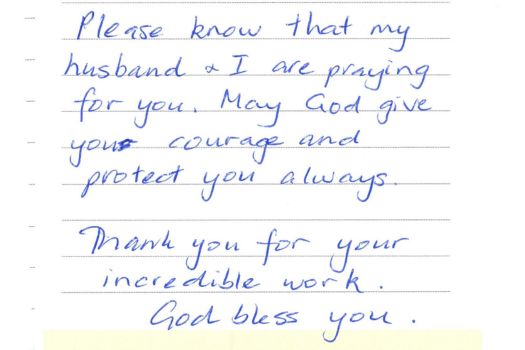 Please know that my
husband & I are praying
for you. May God give
you courage and
protect you always.
Thank you for your
incredible work.
God bless you.